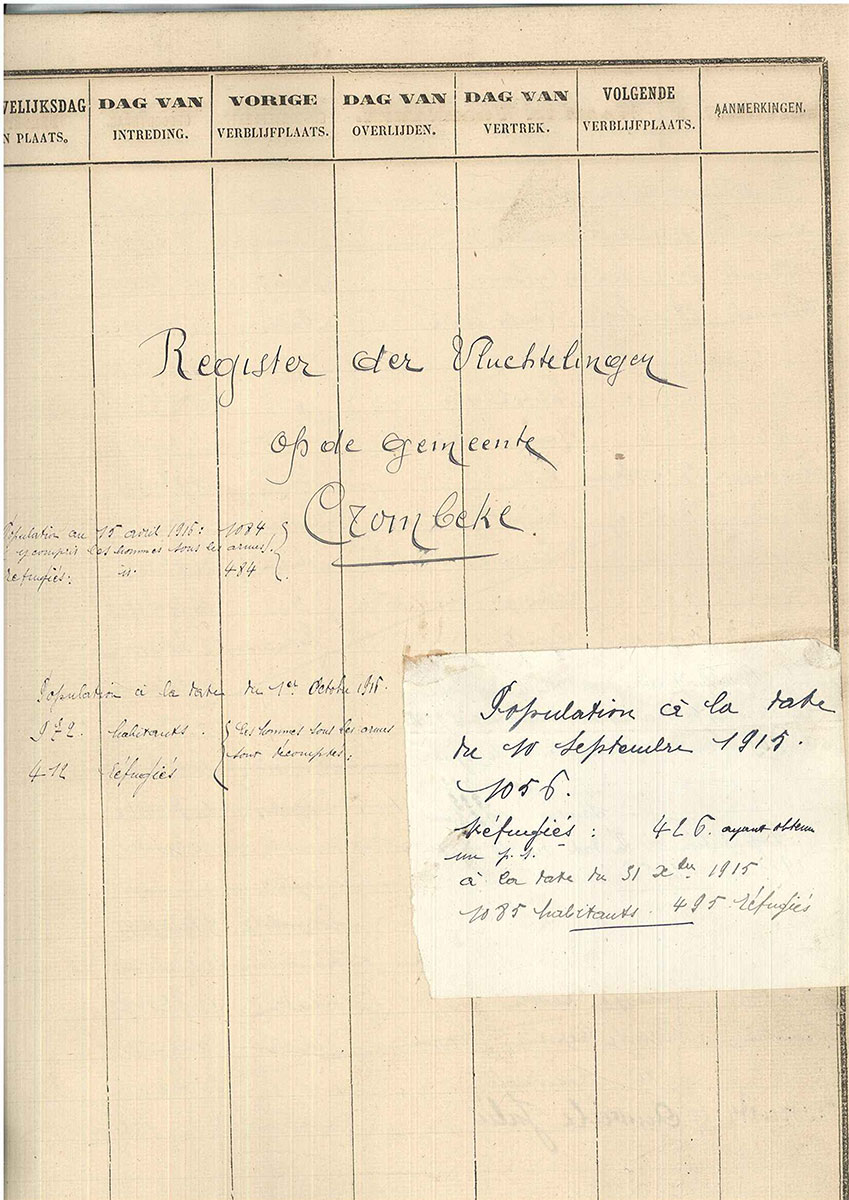 VELIJKSDAG
N PLAATS.
DAG VAN
INTREDING.
VORIGE
VERBLIJFPLAATS.
DAG VAN
OVERLIJDEN.
DAG VAN
VERTREK.
VOLGENDE
VERBLIJFPLAATS.
AANMERKINGEN.
Register der Vluchtelingen
op de gemeente
Crombeke.
Population au 15 avril : 1084
y compris les hommes sous les armes.
réfugiés: 484
Population à la date du 1er Octobre
habitants. les hommes sous les armes
sont décomptés.
412 réfugiés
Population à la date
du 10 Septembre 1915.
1056.
Réfugiés : 426. ayant obtenu
un p. s.
à la date du 31 Xbre 1915
1085 habitants. 495 réfugiés